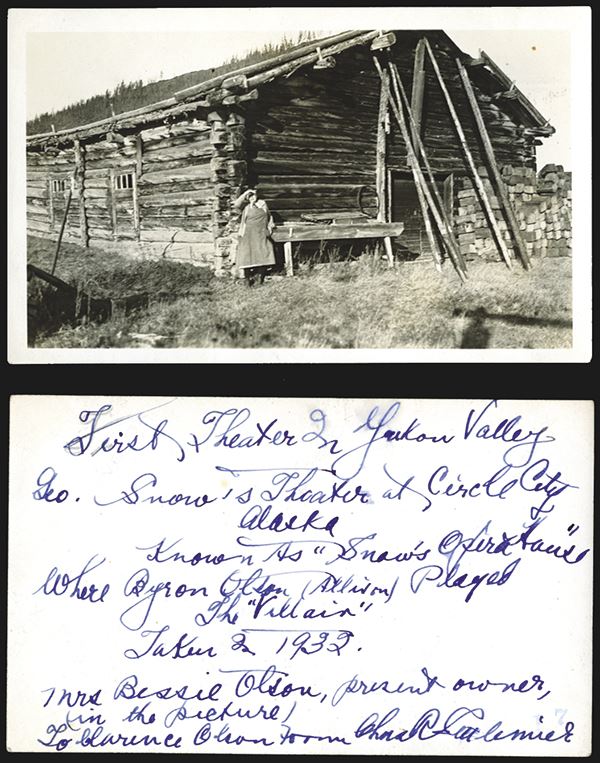 First Theater In Yukon Valley
Geo. Snow's Theater at Circle City
Alaska
Known As "Snow's Opera House"
Where Byron Olson (Allison) Played
The "Villain"
Taken In 1932.
Mrs Bessie Olson, present owner,
(in the picture)
To Clarence Olson from Chas R